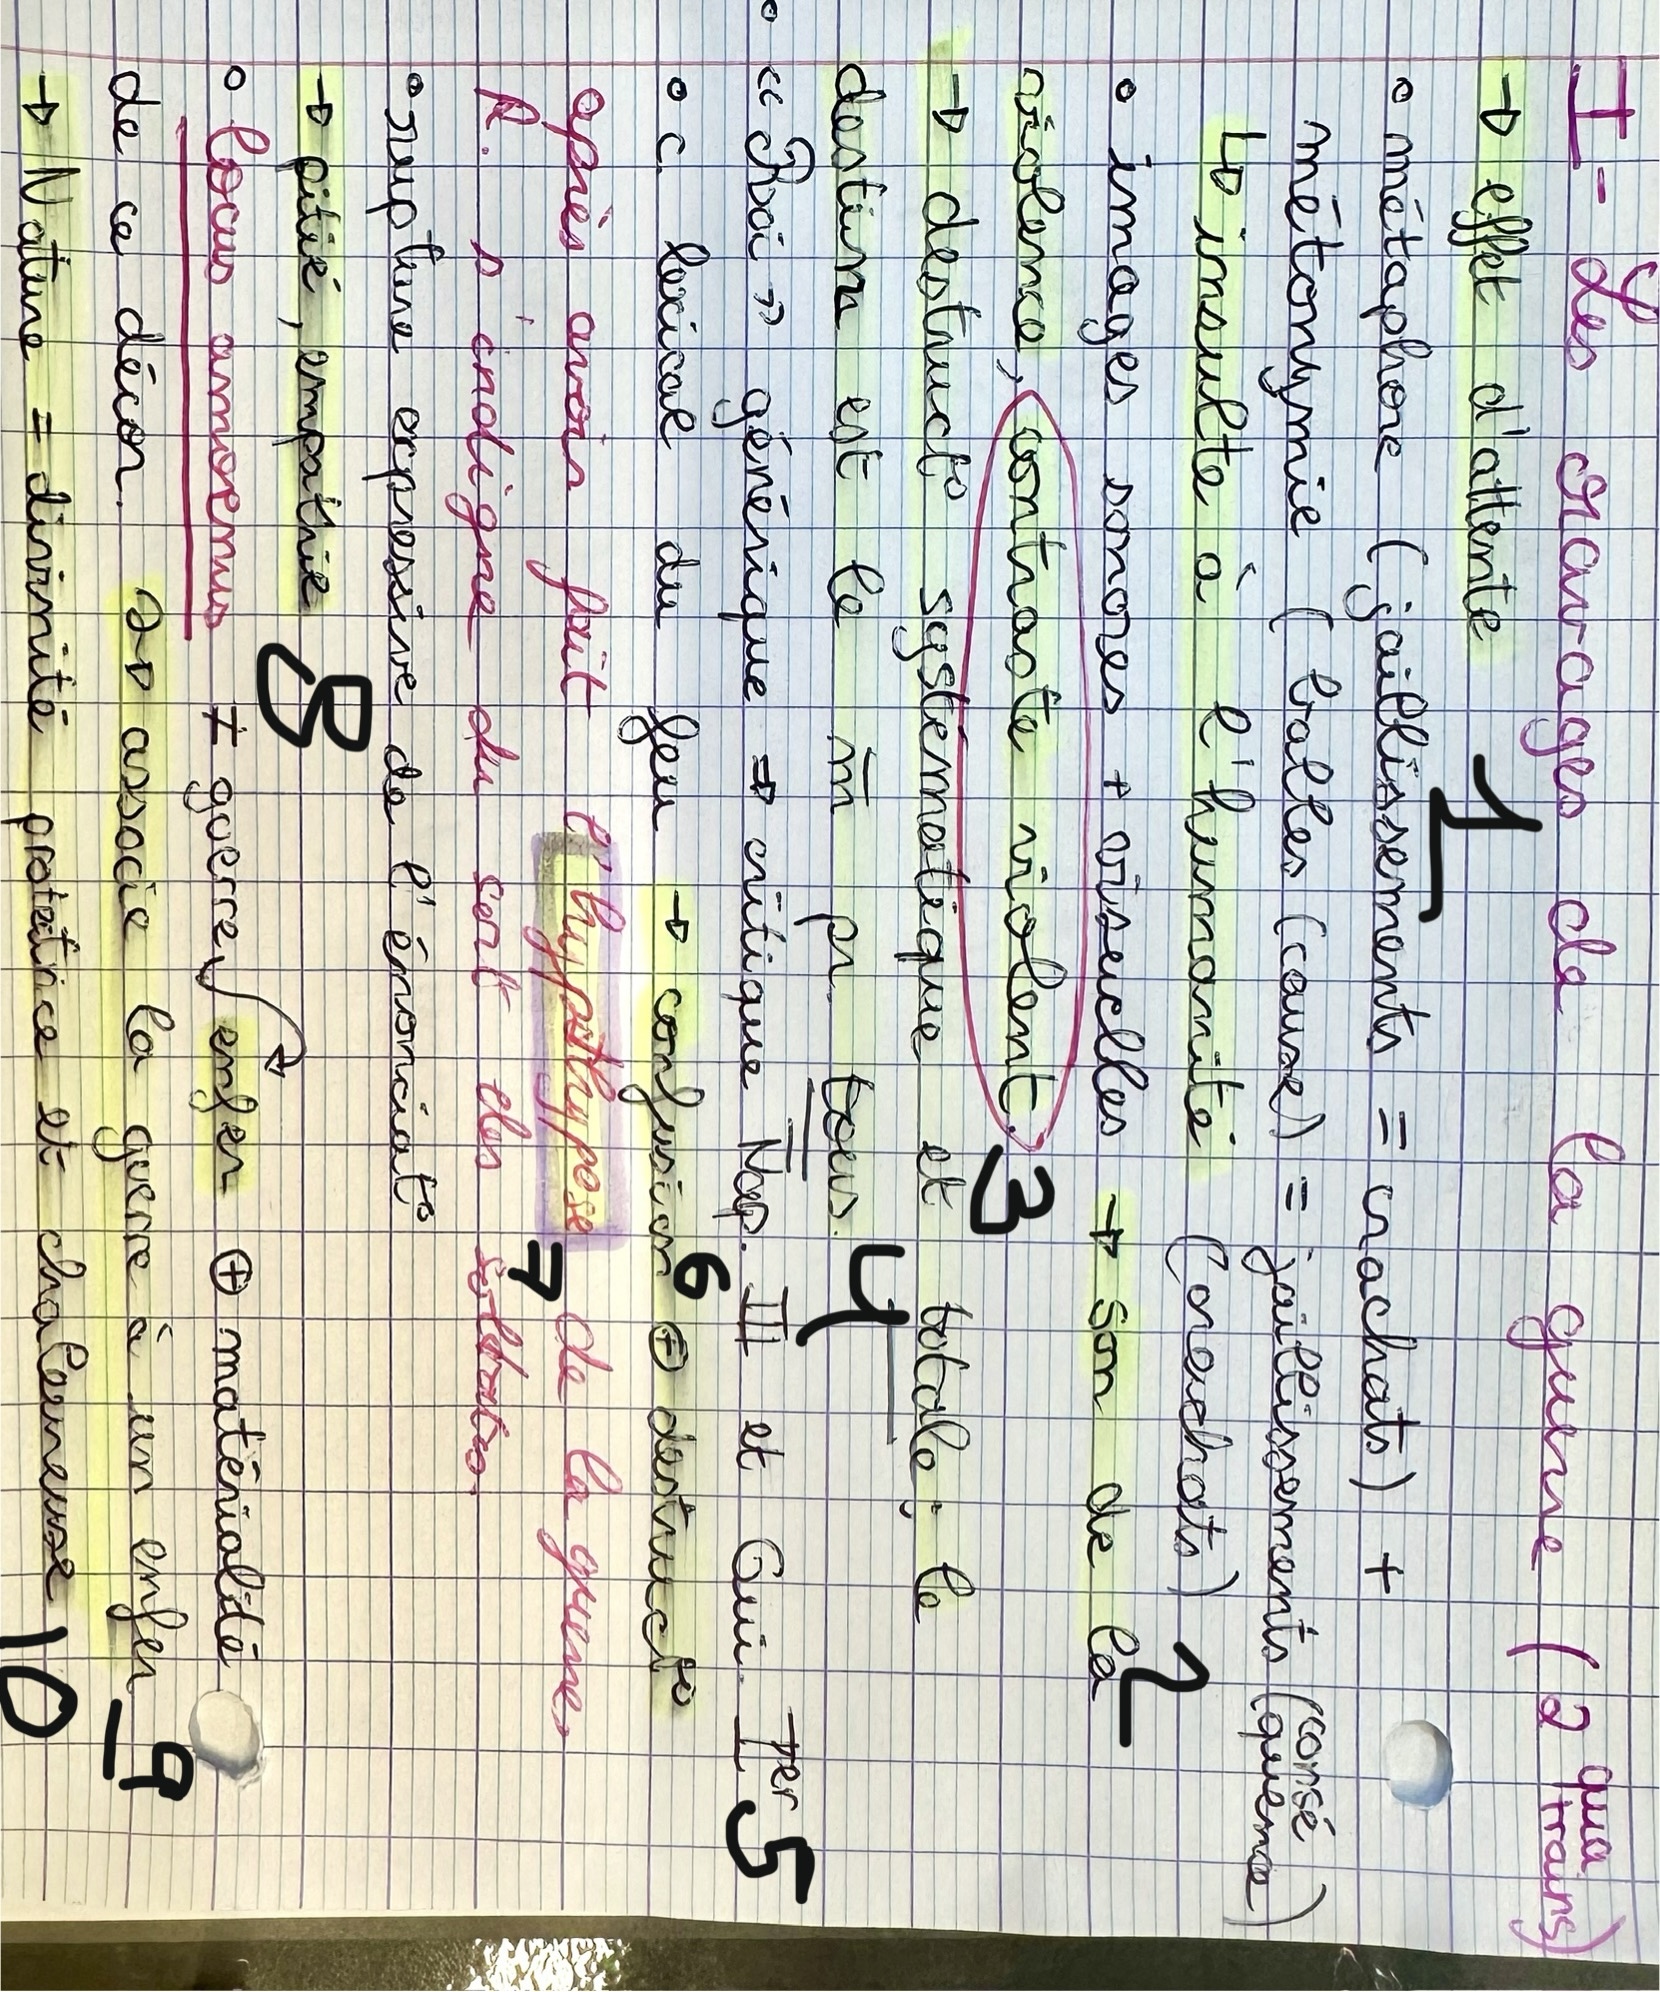 I - Les ravages de la guerre (2 quatrains)
→ effet d'attente 1
° métaphore (jaillissements = crachats) +
métonymie (balles (cause) = jaillissements (conséquence)
↳ insulte à l'humanité (crachats) 2
° images sonores + visuelles → son de la
violence, contraste violent. 3
→ destruct° systématique et totale; le
destin est le m̄ pr. tous. 4
° « Roi » générique → critique Nap. III et Gui. Ier 5
° c. lexical du feu → confusion ⊕ destruct° 6
après avoir fait l'hypothypose de la guerre,
R. s'indigne du sort des soldats. 7
° rupture expressive de l'énonciat°
→ pitié, empathie 8
° locus amoenus ≠ guerre, enfer ⊕ matérialité
de ce décor. → associe la guerre à un enfer 9
→ Nature = divinité protectrice et chaleureuse 10